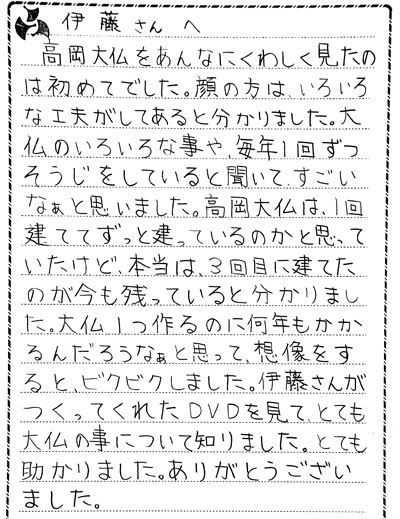 伊藤さんへ
高岡大仏をあんなにくわしく見たの
は初めてでした。顔の方は、いろいろ
な工夫がしてあると分かりました。大
仏のいろいろな事や、毎年1回ずつ
そうじをしていると聞いて、すごい
なぁと思いました。高岡大仏は、1回
建ててずっと建っているのかと思って
いたけど、本当は、3回目に建てた
のが今も残っていると分かりまし
た。大仏1つ作るのに何年もかか
るんだろうなぁと思って、想像をす
ると、ビクビクしました。伊藤さんが
つくってくれたDVDを見て、とても
大仏の事について知りました。とても
助かりました。ありがとうござい
ました。